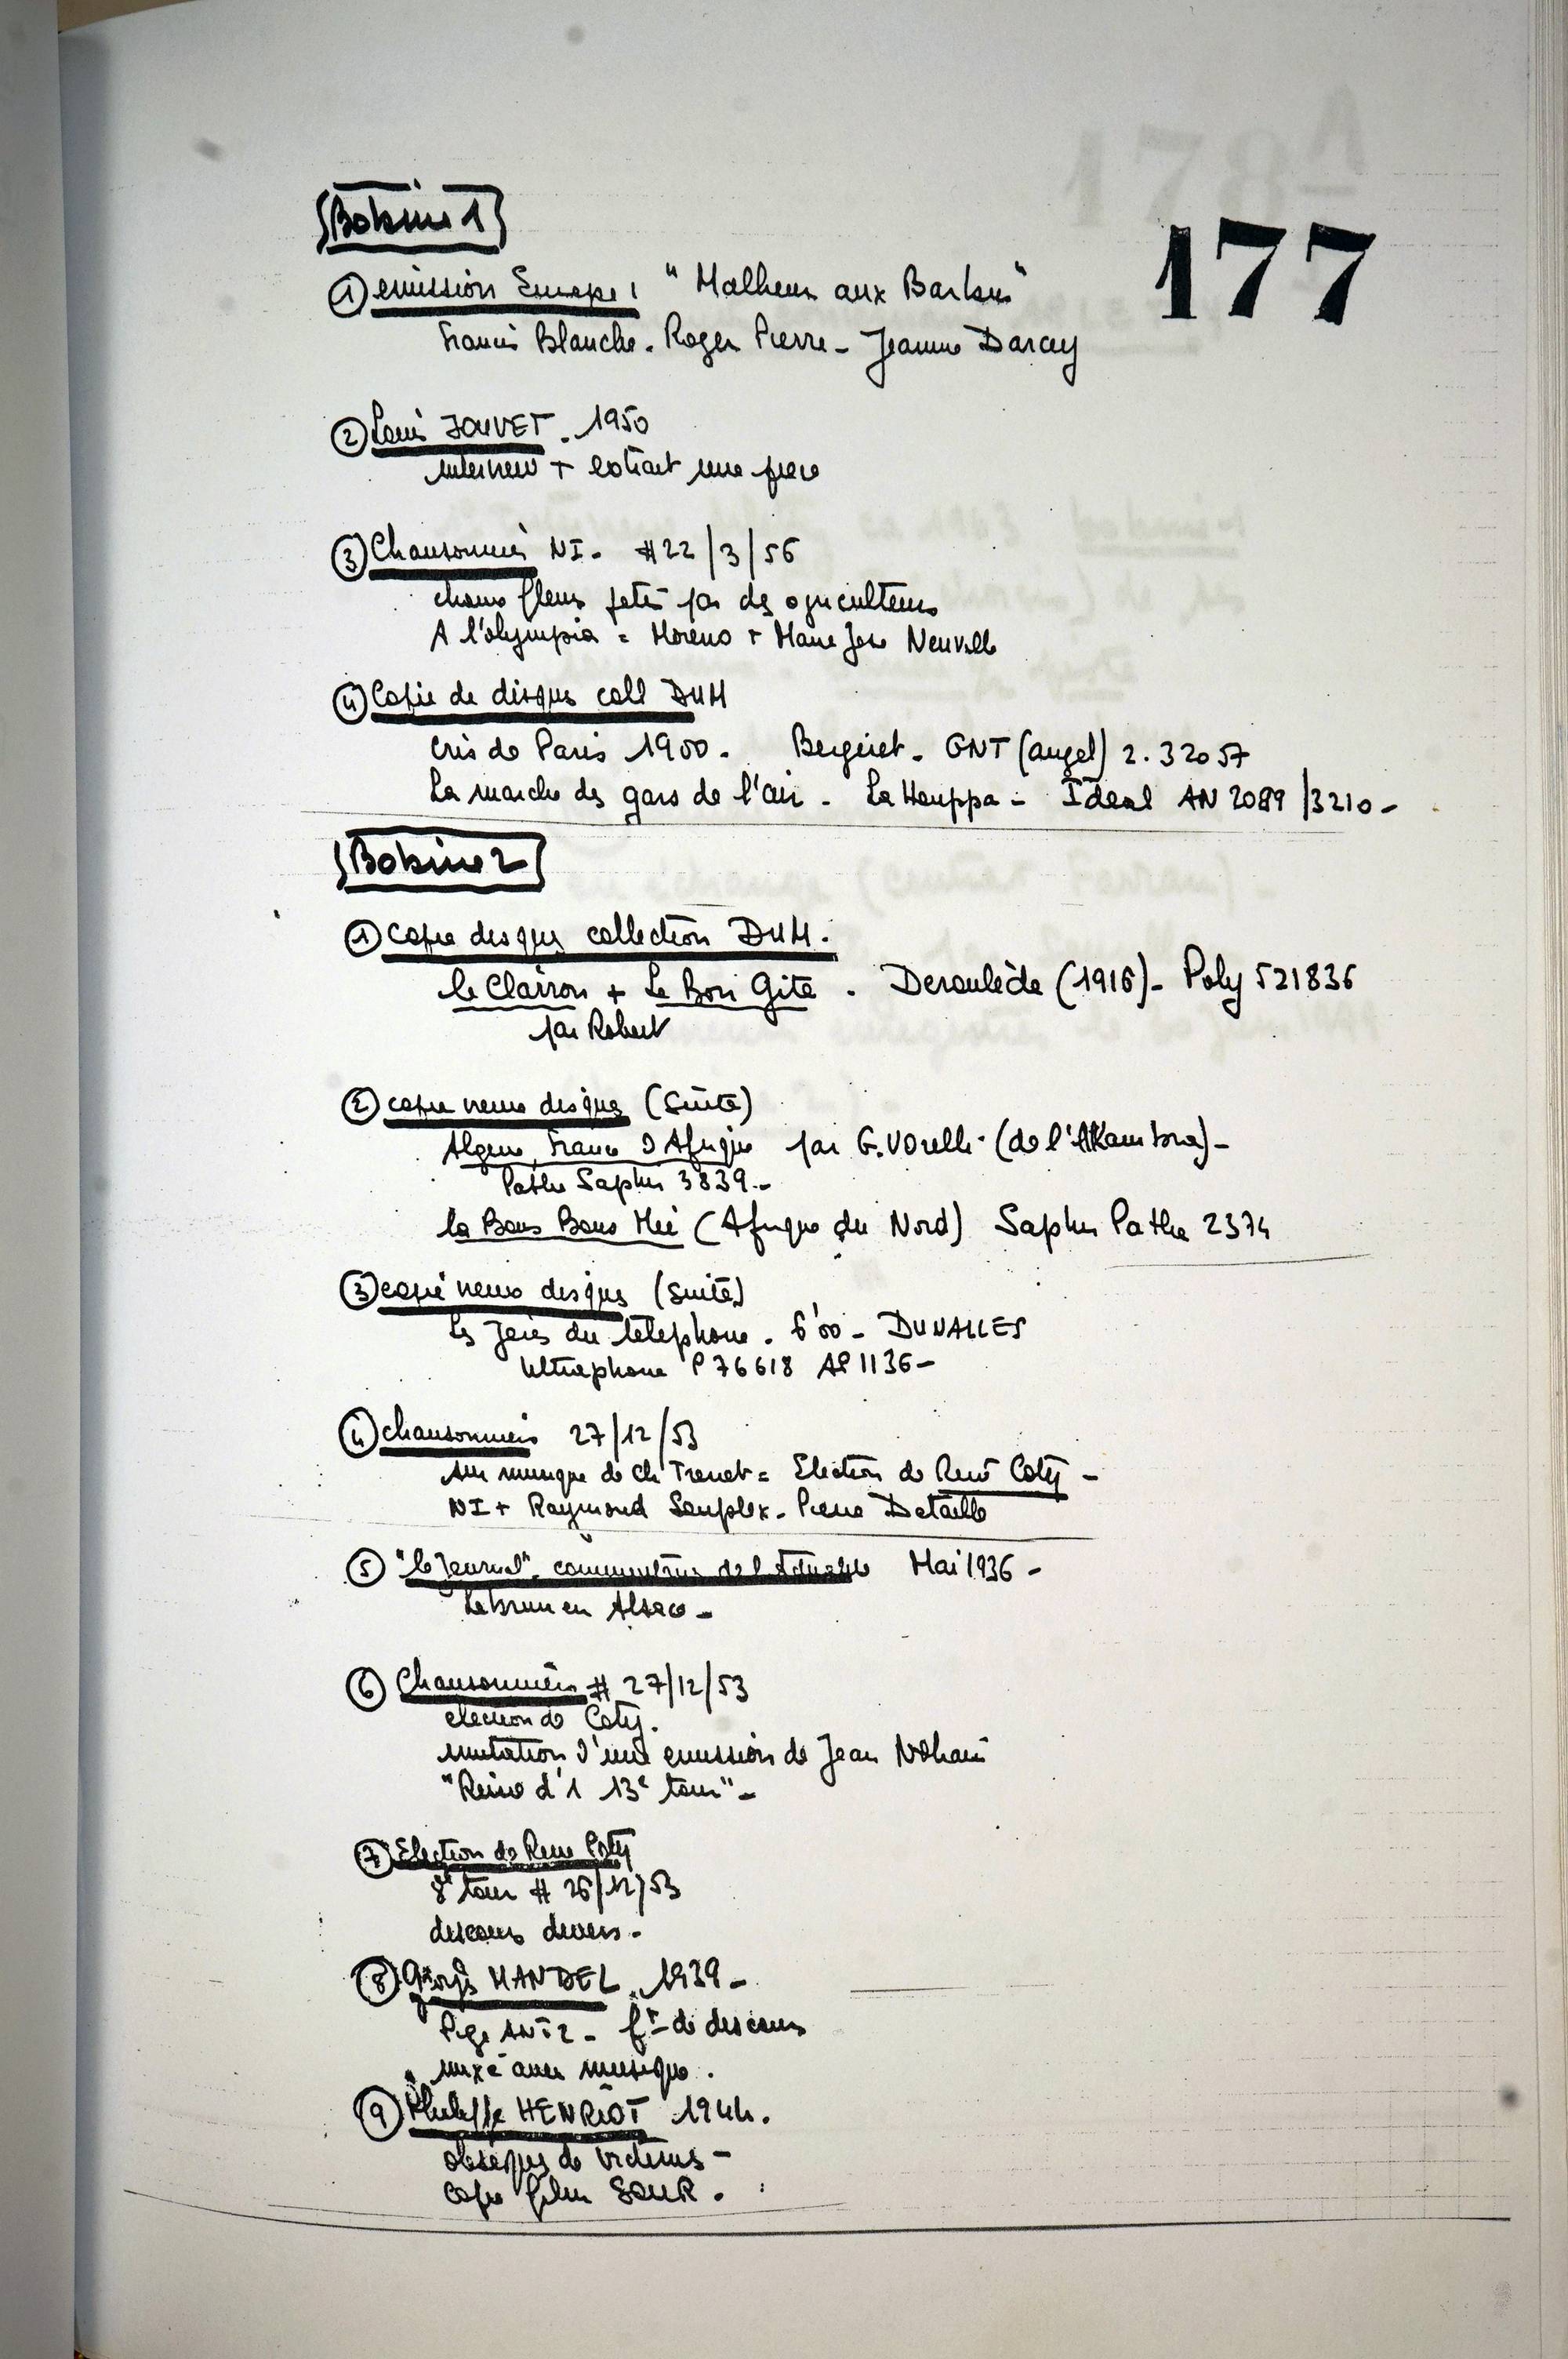 Bobine 1
177
① emission Europe 1 "Malheur aux Barbus"
Francis Blanche - Roger Pierre - Jeanne Darcey
② Louis JOUVET - 1950
interview + extrait une piece
③ Chansonniers NI - #22/3/56
choux fleurs jetés par des agriculteurs
A l'olympia = Moreno + Marie Jose Neuville
④ Copie de disques coll DUM
cris de Paris 1900 - Bergeret - GNT (angel) 2.32057
La marche des gars de l'air - La Houppa - Ideal AN 2089 /3210 -
Bobine 2
① copie disques collection DUM.
le Clairon + Le Bon Gite . Deroulède (1916) - Poly 521836
par Robert
② copie vieux disques (suite)
Algerie, France d'Afrique par G. Vorelli (de l'Alhambra) -
Pathe Saphir 3839 -
la Bous Bous Mée (Afrique du Nord) Saphir Pathe 2374
③ copie vieux disques (suite)
Les Joies du telephone . 6'00 - DUVALLES
Ultraphone P 76618 AP 1136 -
④ chansonniers 27/12/53
sur musique de Ch Trenet = Election de René Coty -
NI + Raymond Souplex - Pierre Destailles
⑤ "le Journal", commentaires de l'Actualité Mai 1936 -
Lebrun en Alsace -
⑥ Chansonniers # 27/12/53
election de Coty.
imitation d'une emission de Jean Nohain
"Reine d'1 13e tour" -
⑦ Election de Rene Coty
8e tour # 26/12/53
discours divers -
⑧ Georges MANDEL . 1939 -
Pige ANT 2 - ft de discours
mixé avec musique .
⑨ Philippe HENRIOT 1944.
obseques de victimes -
copie film SONR .